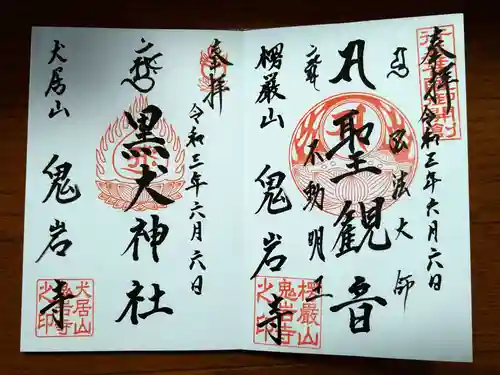 奉拝
令和三年六月六日
弘法大師
聖観音
不動明王
楞厳山
鬼岩寺
楞厳山
鬼岩寺
之印
奉拝
令和三年六月六日
黒犬神社
犬居山
鬼岩寺
犬居山
鬼岩寺
之印